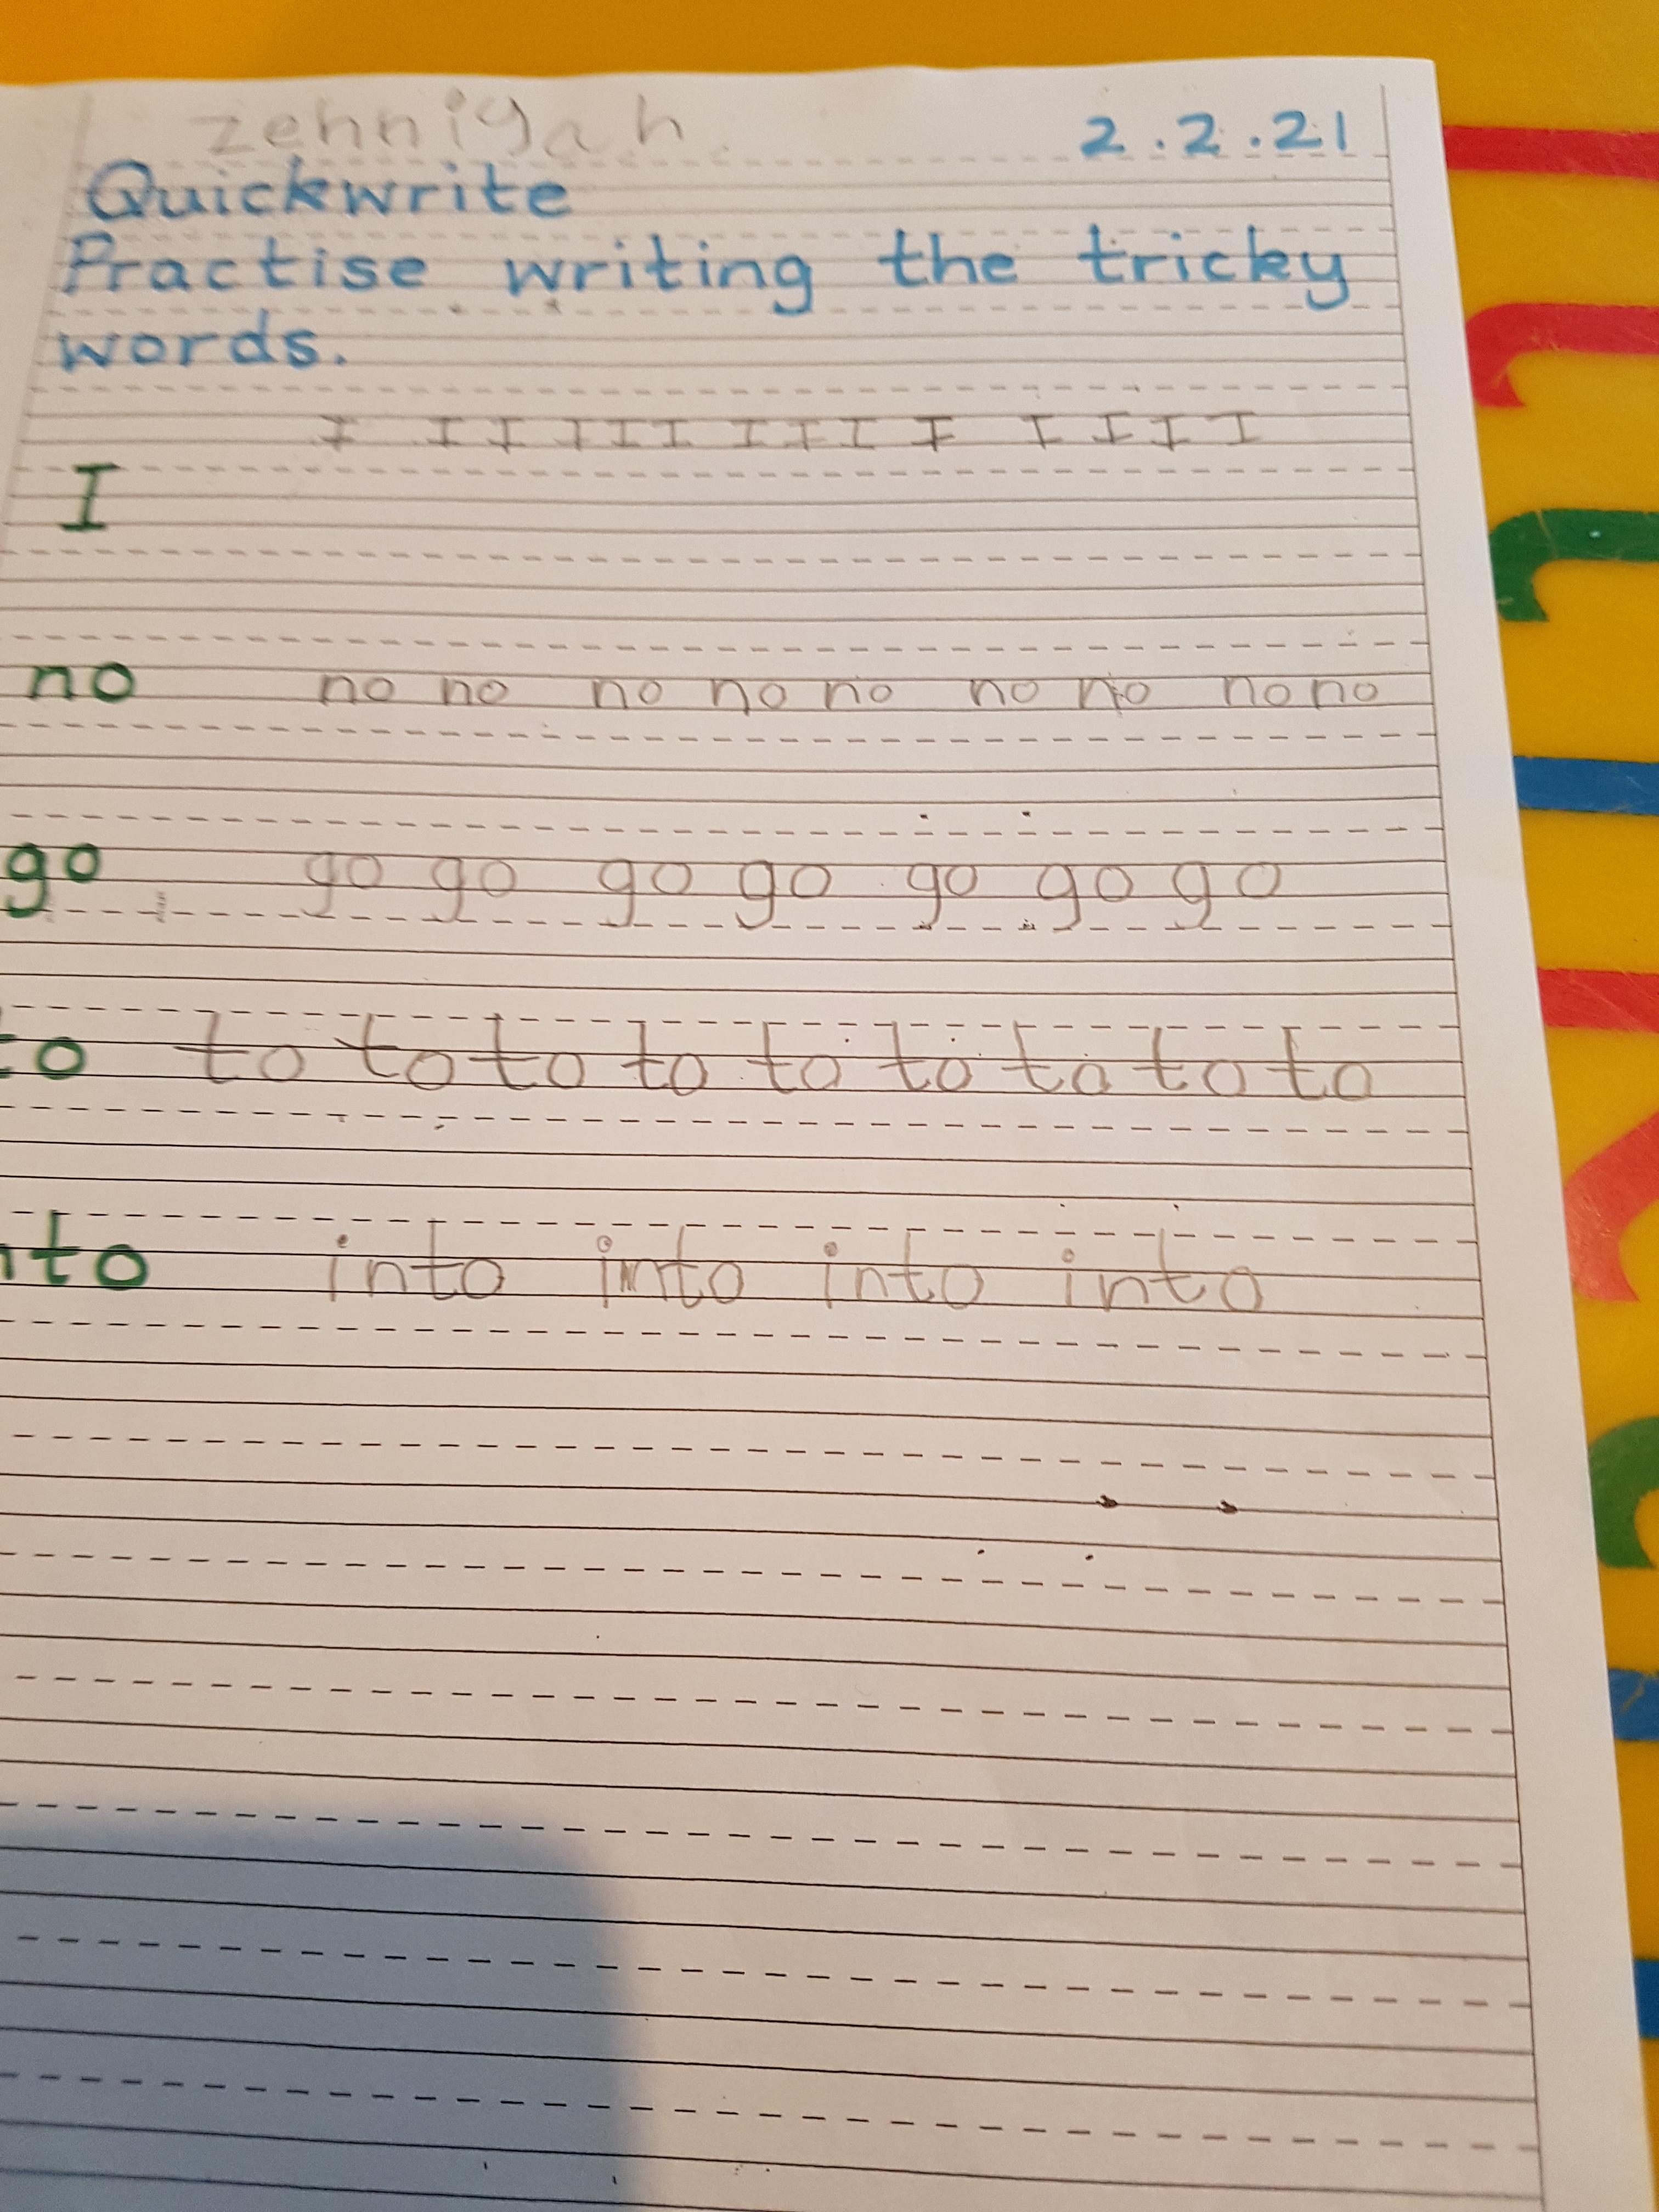 zehniyah 2.2.21
Quickwrite
Practise writing the tricky
words.
I I I I I I I I I I I I I I
I
no no no no no no no no no no
go go go go go go go go
to to to to to to to to to to
nto into into into into